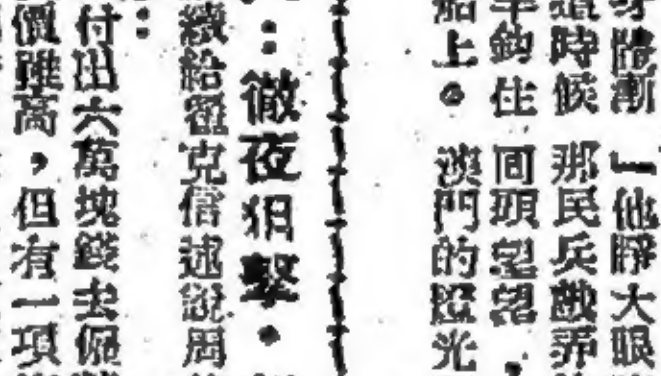 體漸 一他睜大眼
時候 那民兵戲弄
鈎住 回頭望望，
船上。 澳門的燈光
：徹夜狙擊・
續給翟克信述說周
：付出六萬塊錢去僱
價雖高，但有一項